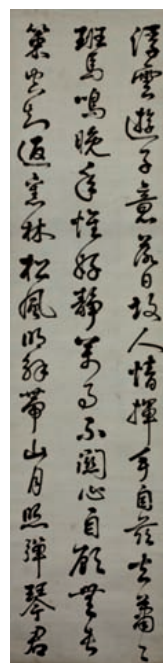 浮雲遊子意落日故人情揮手自茲去蕭〻
班馬鳴晚年惟好靜萬事不關心自顧無長
策空知返舊林松風吹解帶山月照彈琴君